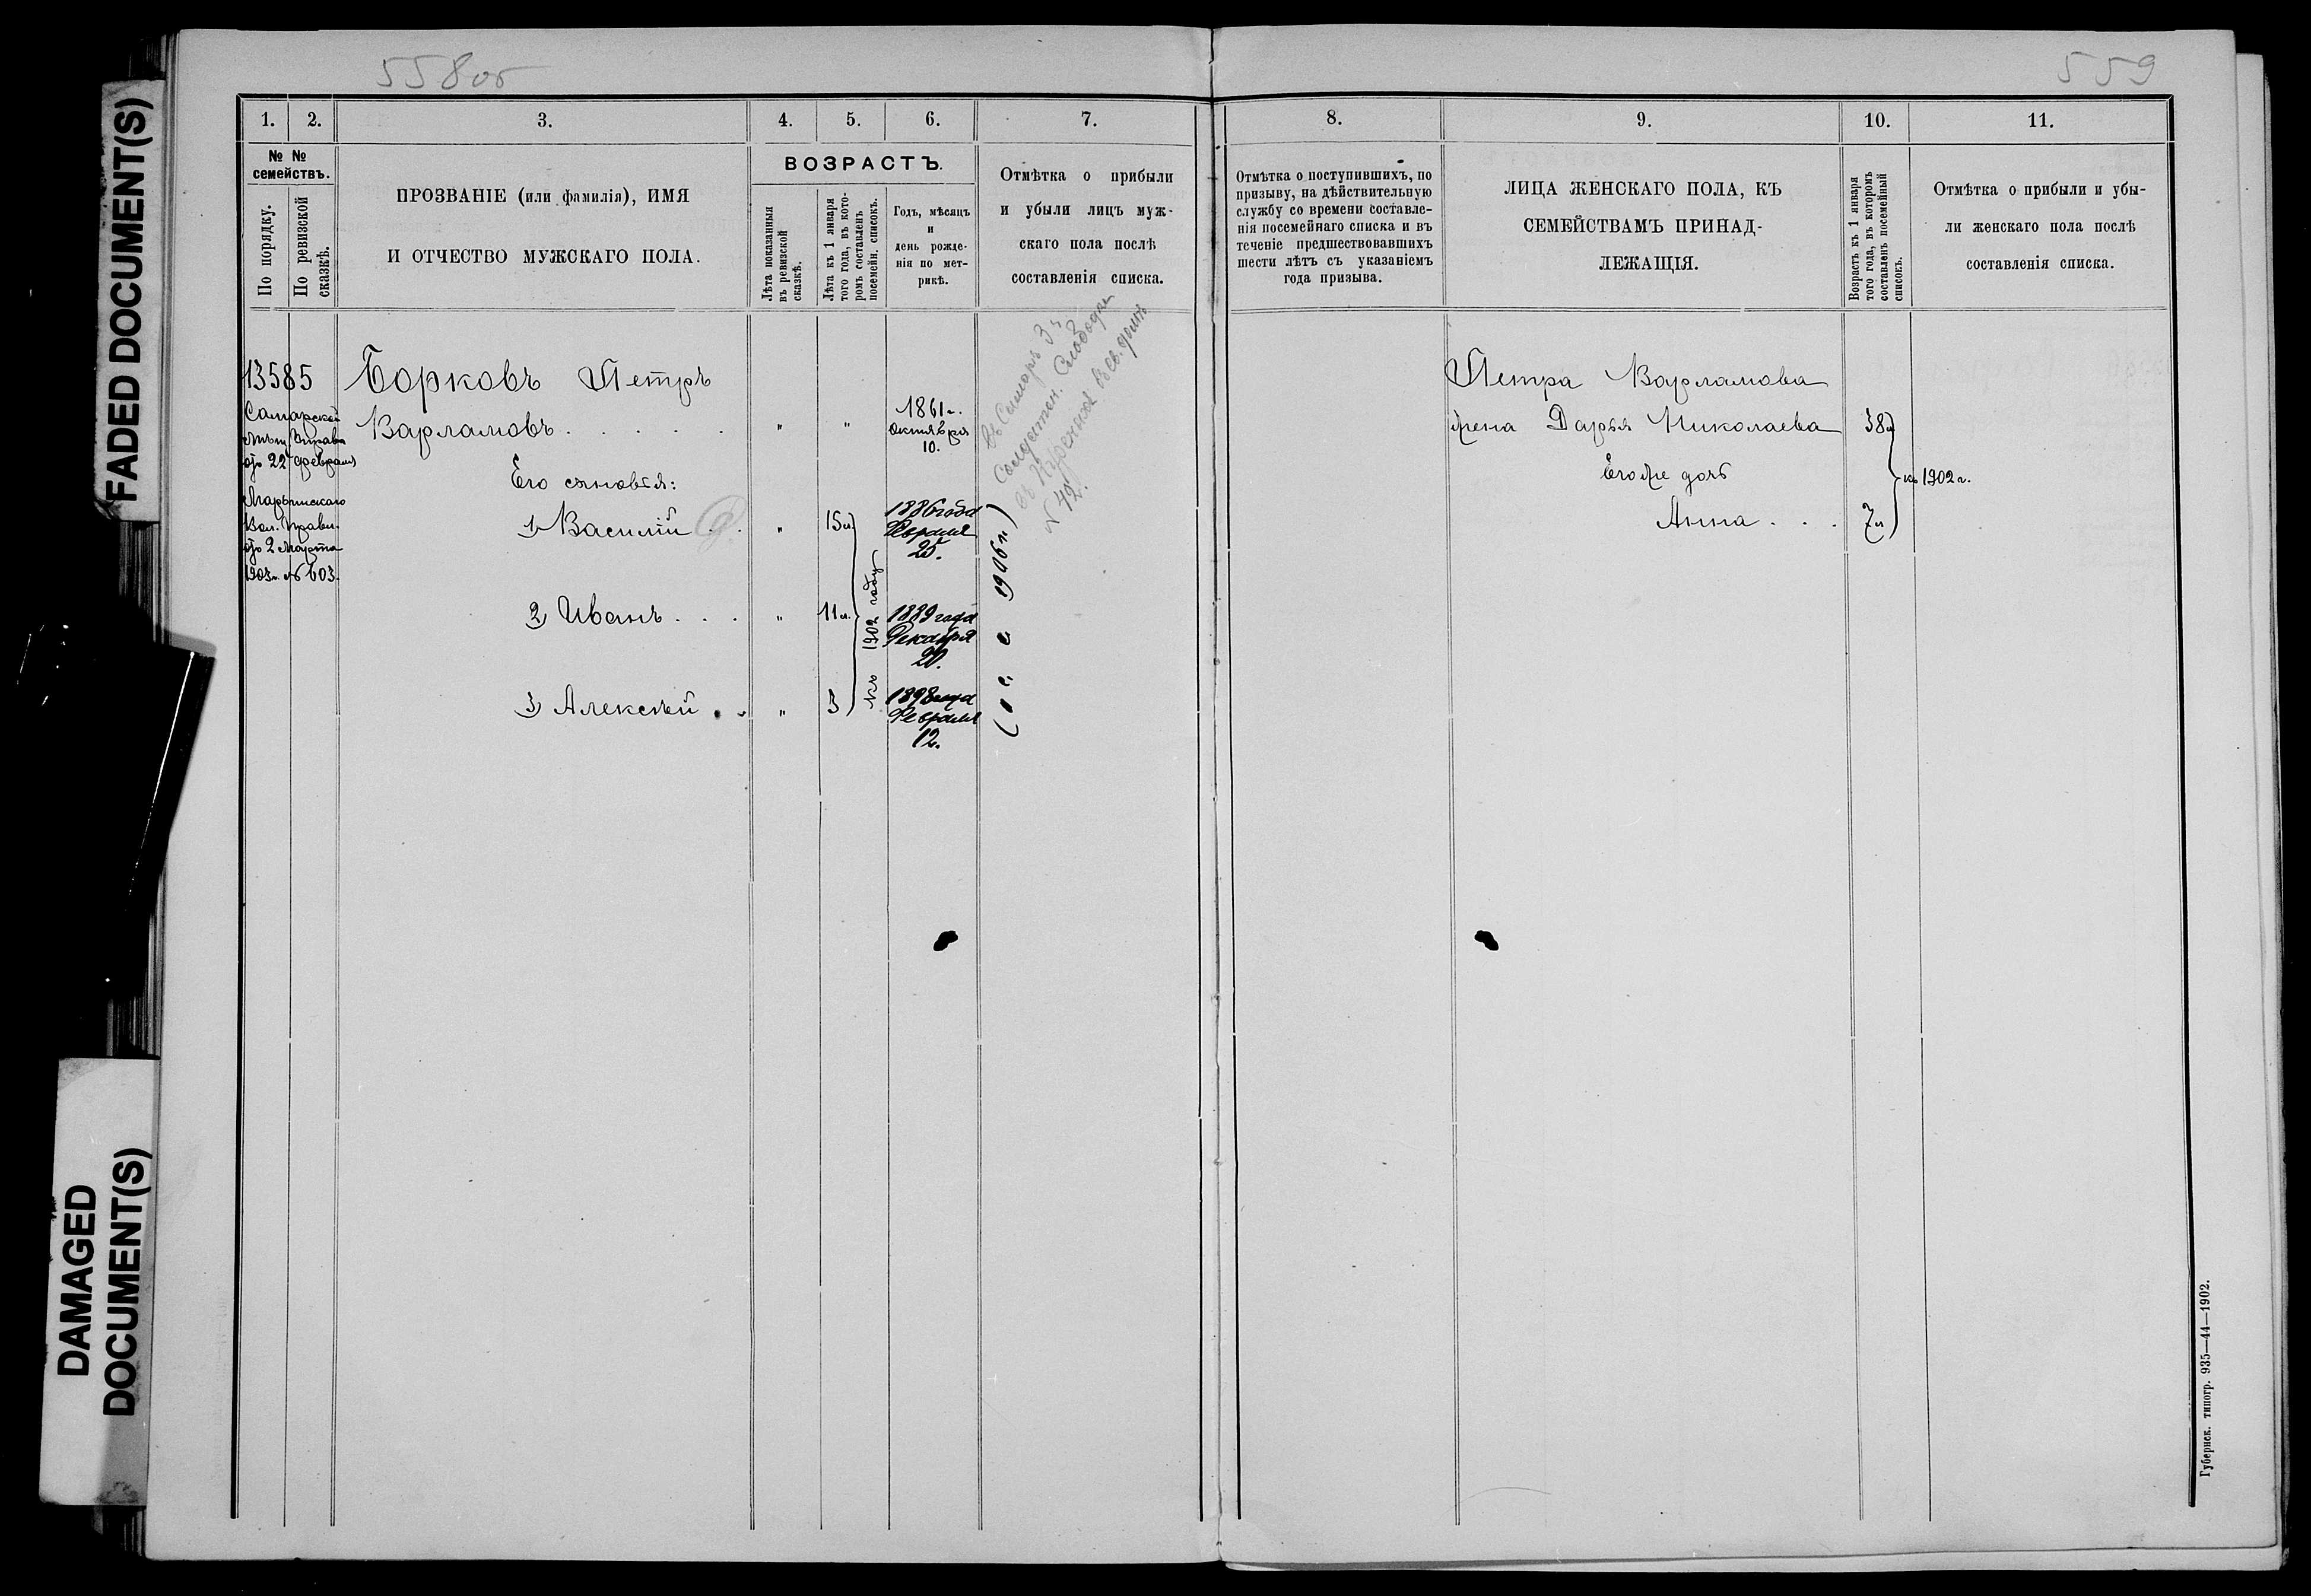 558 об
559
FADED DOCUMENT(S)
DAMAGED
DOCUMENT(S)
1.
2.
3.
4.
5.
6.
7.
№ №
семействъ.
По порядку.
По ревизской
сказкѣ.
ПРОЗВАНІЕ (или фамилія), ИМЯ
И ОТЧЕСТВО МУЖСКАГО ПОЛА.
ВОЗРАСТЪ.
Лѣта показанныя
въ ревизской
сказкѣ.
Лѣта къ 1 января
того года, въ кото-
ромъ составленъ
посемейн. списокъ.
Годъ, мѣсяцъ
и
день рожде-
нія по мет-
рикѣ.
Отмѣтка о прибыли
и убыли лицъ муж-
скаго пола послѣ
составленія списка.
13585
Самарской
мѣщ. Управы
отъ 22 февраля
Вол. Правл.
отъ 2 марта
1903 г. № 603.
Борковъ Петръ
Варламовъ . . . . . " "
1861 г.
октября
10.
Его сыновья:
1, Василій . " 15 л.
1886 года
Февраля
25.
2, Иванъ . . . " 11 л.
1889 года
Декабря
20.
3, Алексѣй . . " 3
1898 года
Февраля
12.
къ 1902 году
въ Самарѣ 3 ч
Солдатск. Слободка
№ 42.
1906 г.)
8.
9.
10.
11.
Отмѣтка о поступившихъ, по
призыву, на дѣйствительную
службу со времени составле-
нія посемейнаго списка и въ
теченіе предшествовавшихъ
шести лѣтъ съ указаніемъ
года призыва.
ЛИЦА ЖЕНСКАГО ПОЛА, КЪ
СЕМЕЙСТВАМЪ ПРИНАД-
ЛЕЖАЩІЯ.
Возрастъ къ 1 января
того года, въ которомъ
составленъ посемейный
списокъ.
Отмѣтка о прибыли и убы-
ли женскаго пола послѣ
составленія списка.
Петра Варламова
жена Дарья Николаева 38 л
Его же дочь
Анна . . . 7 л
къ 1902 г.
Губернск. типогр. 935—44—1902.